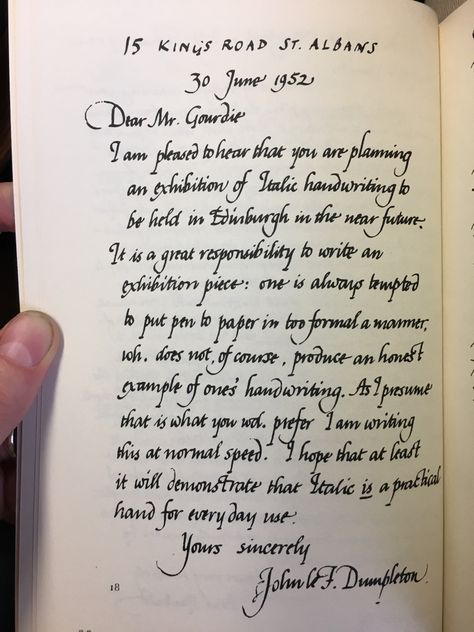 15 KING'S ROAD ST. ALBANS
30 June 1952
Dear Mr. Gourdie
I am pleased to hear that you are planning
an exhibition of Italic handwriting to
be held in Edinburgh in the near future.
It is a great responsibility to write an
exhibition piece: one is always tempted
to put pen to paper in too formal a manner,
wh. does not, of course, produce an honest
example of ones' handwriting. As I presume
that is what you wd. prefer I am writing
this at normal speed. I hope that at least
it will demonstrate that Italic is a practical
hand for everyday use.
Yours sincerely
John le F. Dumpleton.
18